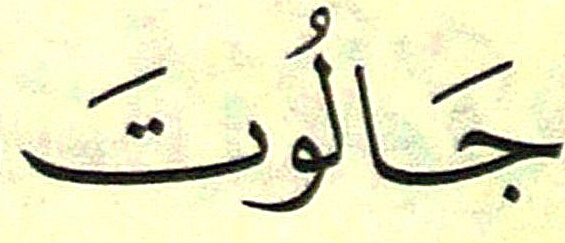 جَالُوتَ